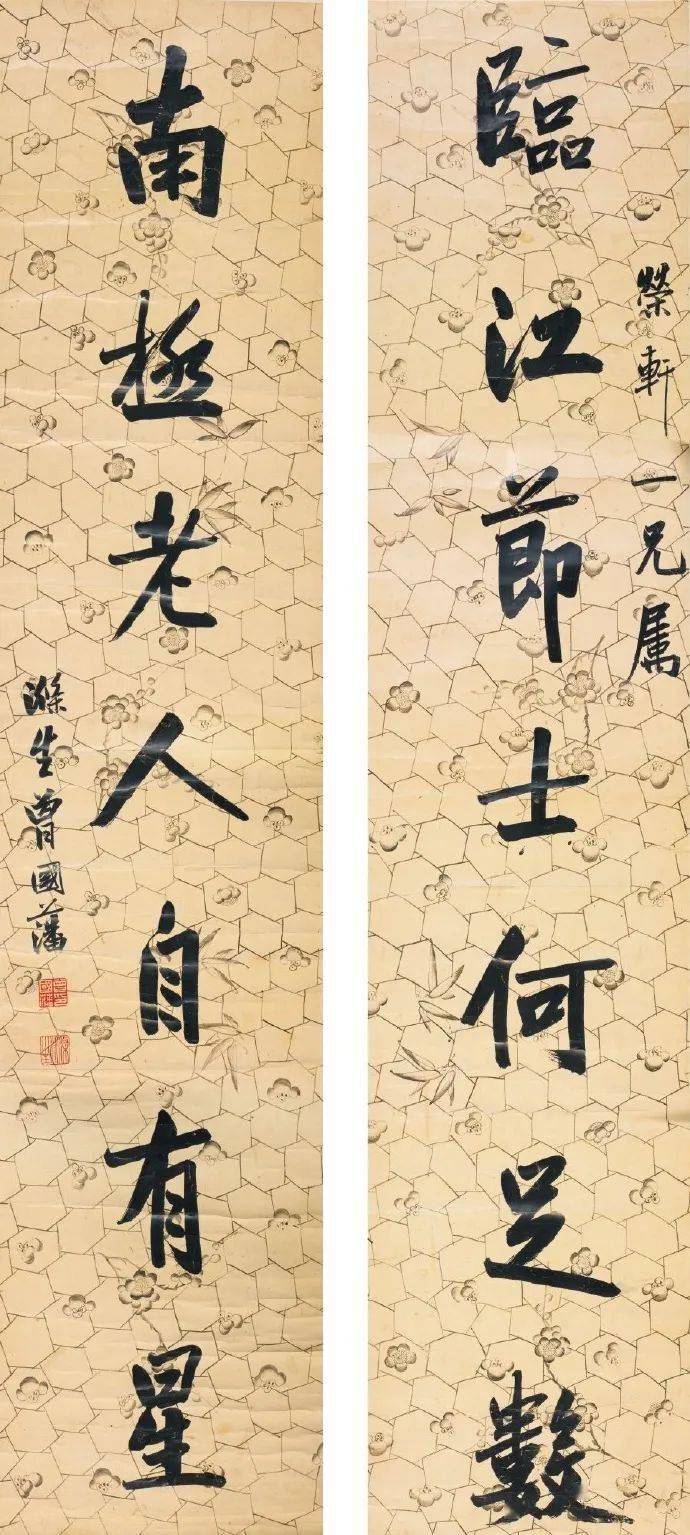 臨江節士何足數
榮軒一兄属
南極老人自有星
滌生曾國藩